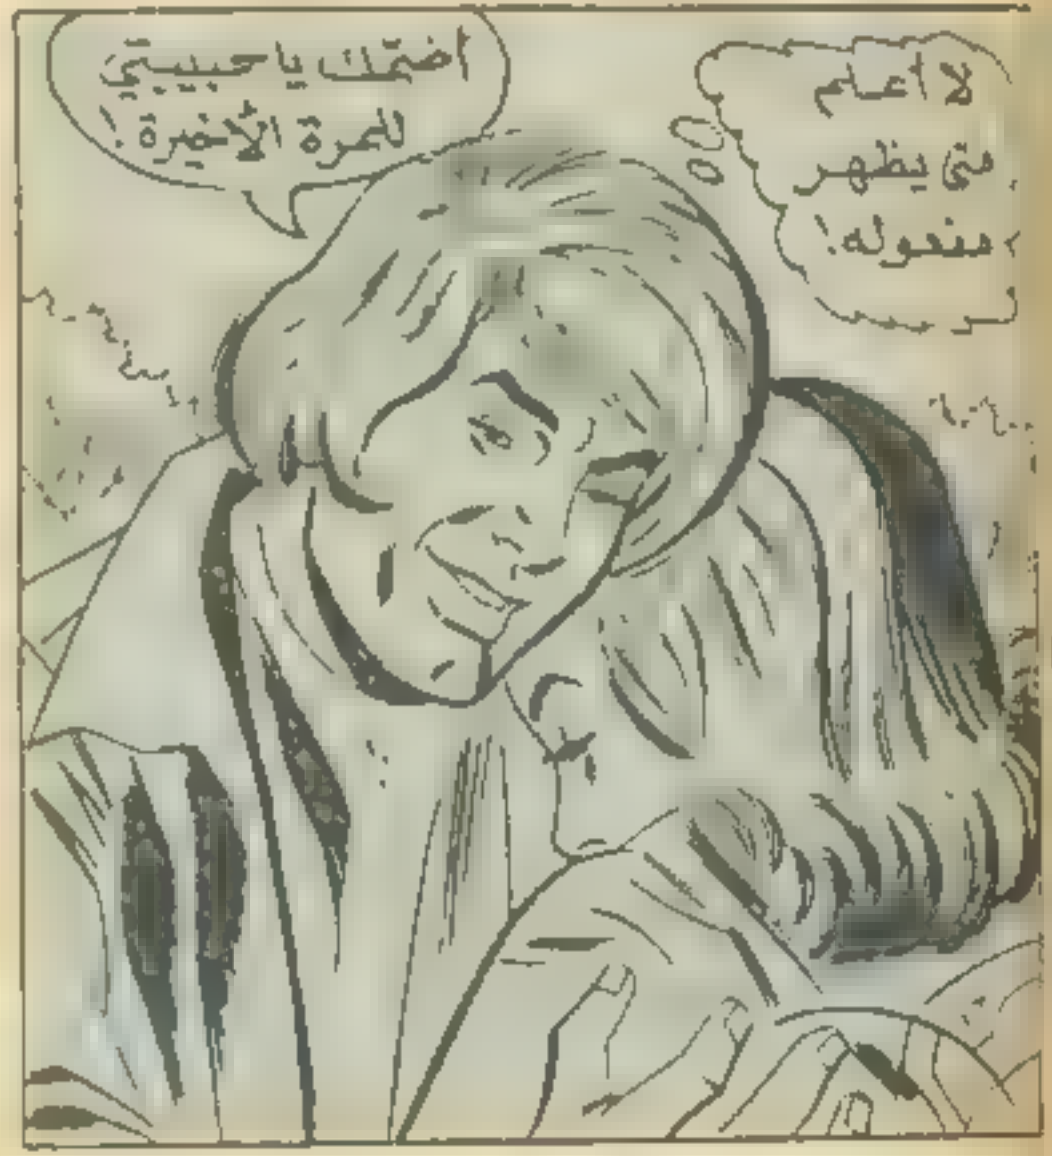 لا أعلم
متى يظهر
مفعوله!
أضمّك يا حبيبتي
للمرة الأخيرة!